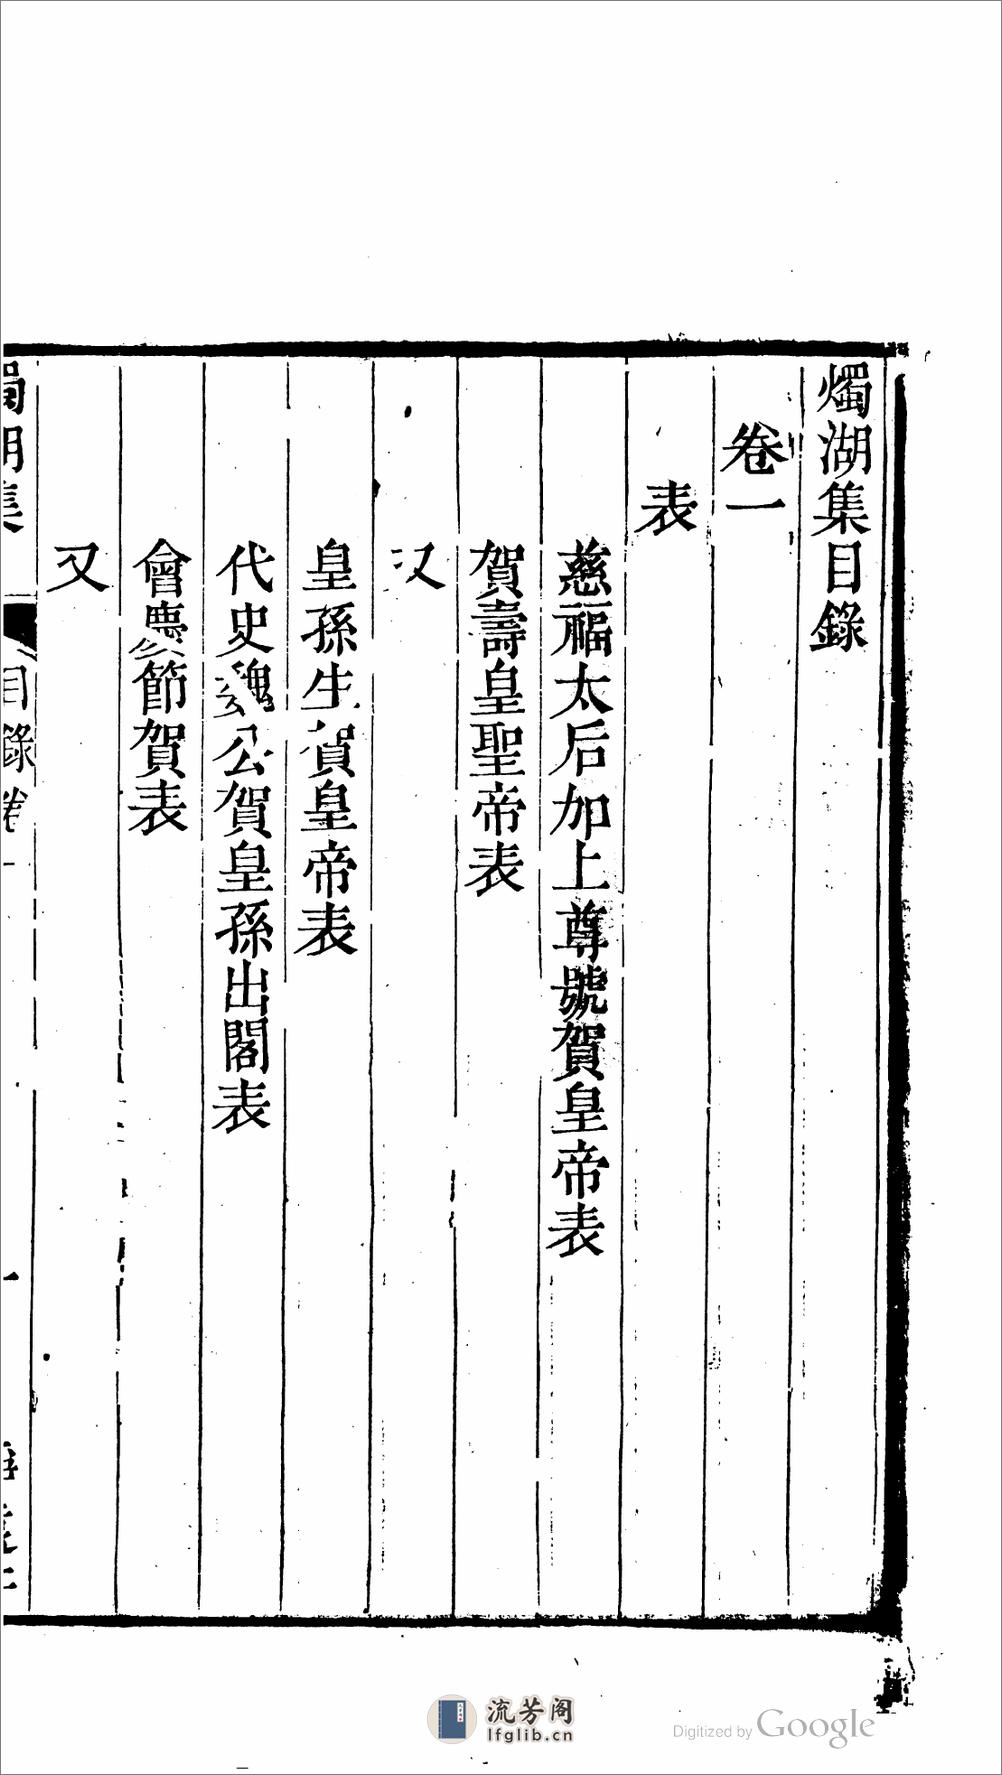 燭湖集目錄
卷一
表
慈福太后加上尊號賀皇帝表
賀壽皇聖帝表
又
皇孫生賀皇帝表
代史魏公賀皇孫出閣表
會慶節賀表
又
燭湖集
目錄卷一
一
流芳阁
lfglib.cn
Digitized by Google